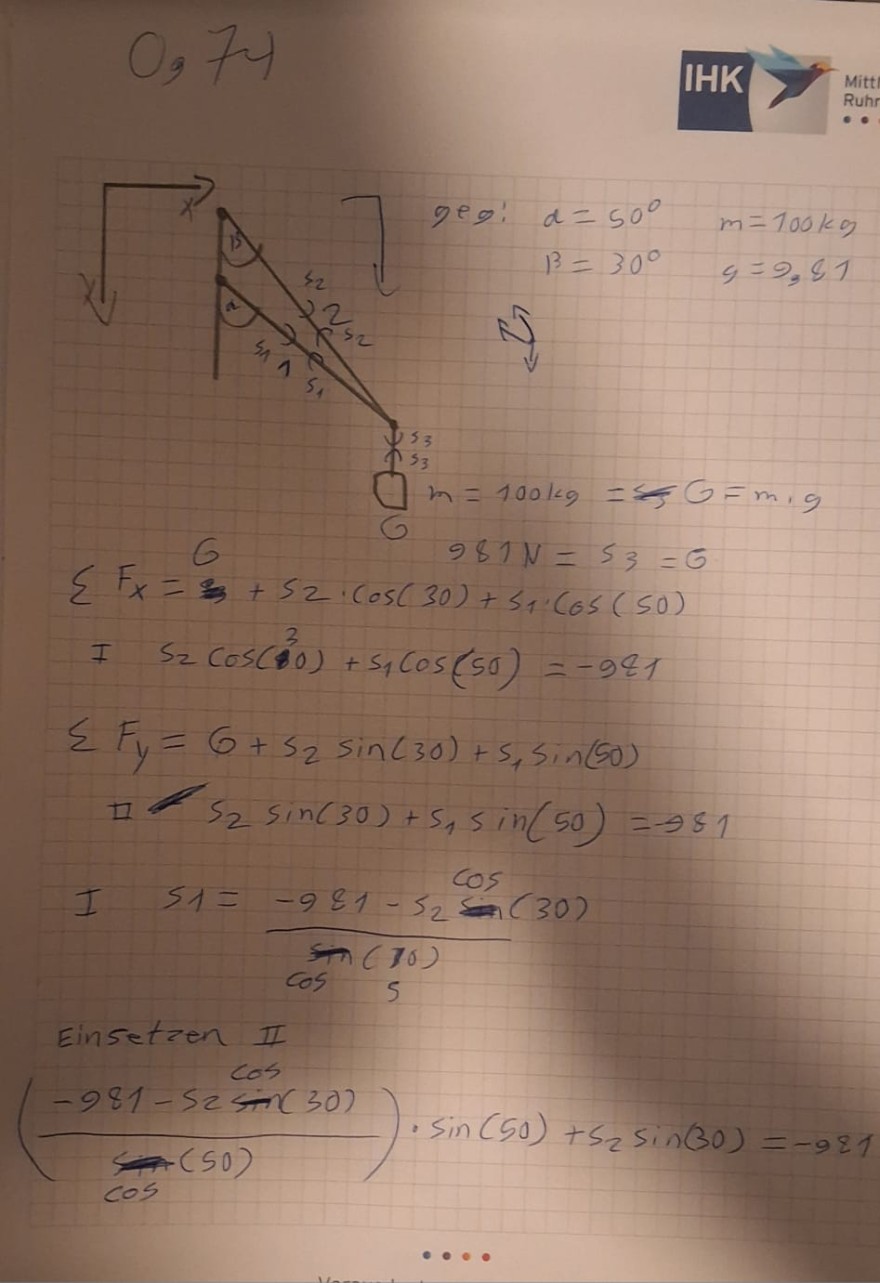 0,74
IHK
Mittl
Ruhr
X
Y
β
α
S2
2
S2
S1
1
S1
S3
S3
G
geg: α = 50° m = 100kg
β = 30° g = 9,81
m = 100kg = G = m · g
981N = S3 = G
Σ Fx = G + S2 · cos(30) + S1 · cos(50)
I S2 cos(30) + S1 cos(50) = -981
Σ Fy = G + S2 sin(30) + S1 sin(50)
II S2 sin(30) + S1 sin(50) = -981
I S1 = -981 - S2 cos(30)
cos(50)
Einsetzen II
(-981 - S2 cos(30)
cos(50)) · sin(50) + S2 sin(30) = -981